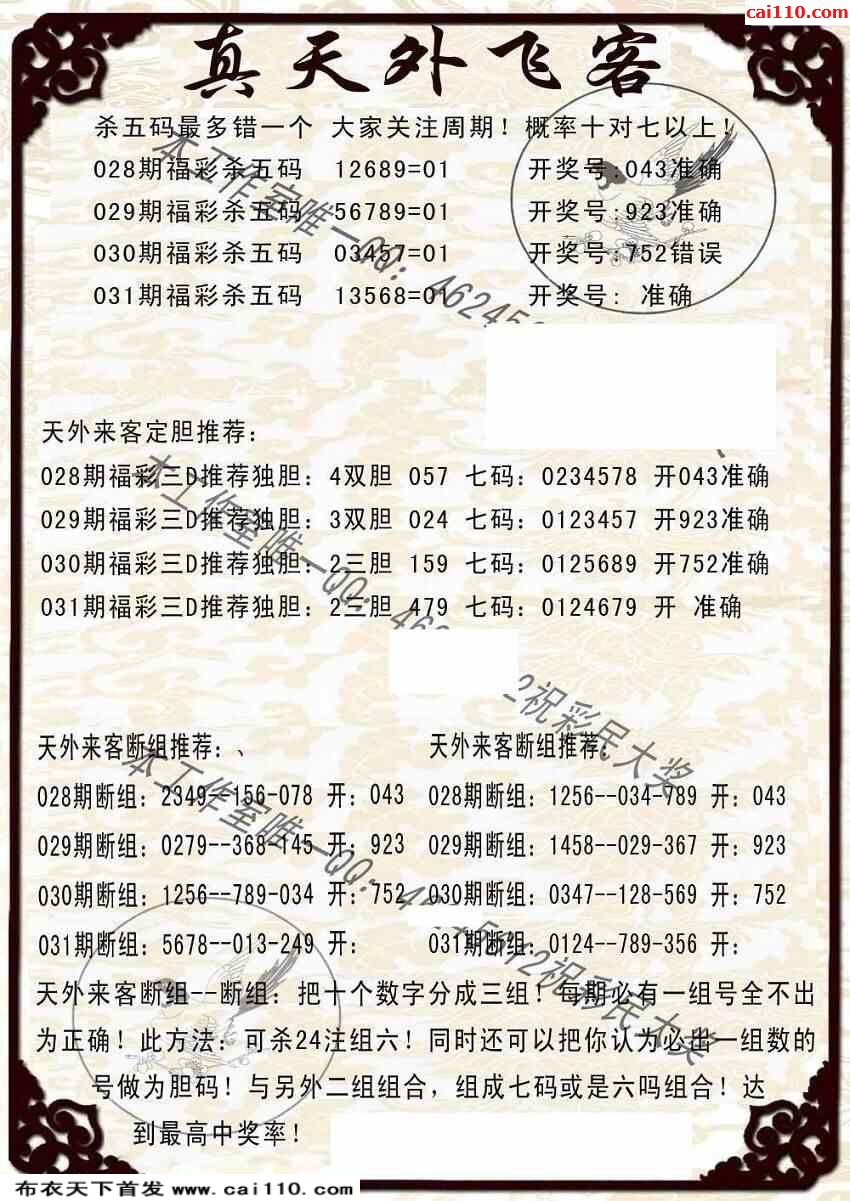 cai110.com
真天外飞客
杀五码最多错一个 大家关注周期！概率十对七以上！
028期福彩杀五码 12689=01 开奖号:043准确
029期福彩杀五码 56789=01 开奖号:923准确
030期福彩杀五码 03457=01 开奖号:752错误
031期福彩杀五码 13568=01 开奖号: 准确
天外来客定胆推荐:
028期福彩三D推荐独胆: 4双胆 057 七码: 0234578 开043准确
029期福彩三D推荐独胆: 3双胆 024 七码: 0123457 开923准确
030期福彩三D推荐独胆: 2三胆 159 七码: 0125689 开752准确
031期福彩三D推荐独胆: 2三胆 479 七码: 0124679 开 准确
天外来客断组推荐:、
028期断组: 2349--156-078 开: 043
029期断组: 0279--368-145 开: 923
030期断组: 1256--789-034 开: 752
031期断组: 5678--013-249 开:
天外来客断组推荐:
028期断组: 1256--034-789 开: 043
029期断组: 1458--029-367 开: 923
030期断组: 0347--128-569 开: 752
031期断组: 0124--789-356 开:
天外来客断组--断组: 把十个数字分成三组！每期必有一组号全不出
为正确！此方法: 可杀24注组六！同时还可以把你认为必出一组数的
号做为胆码！与另外二组组合, 组成七码或是六吗组合！达
到最高中奖率！
本工作室唯一QQ: 46245
本工作室唯一QQ: 46
2祝彩民大奖
本工作室唯一QQ: 4
5612祝彩民大奖
布衣天下首发 www.cai110.com